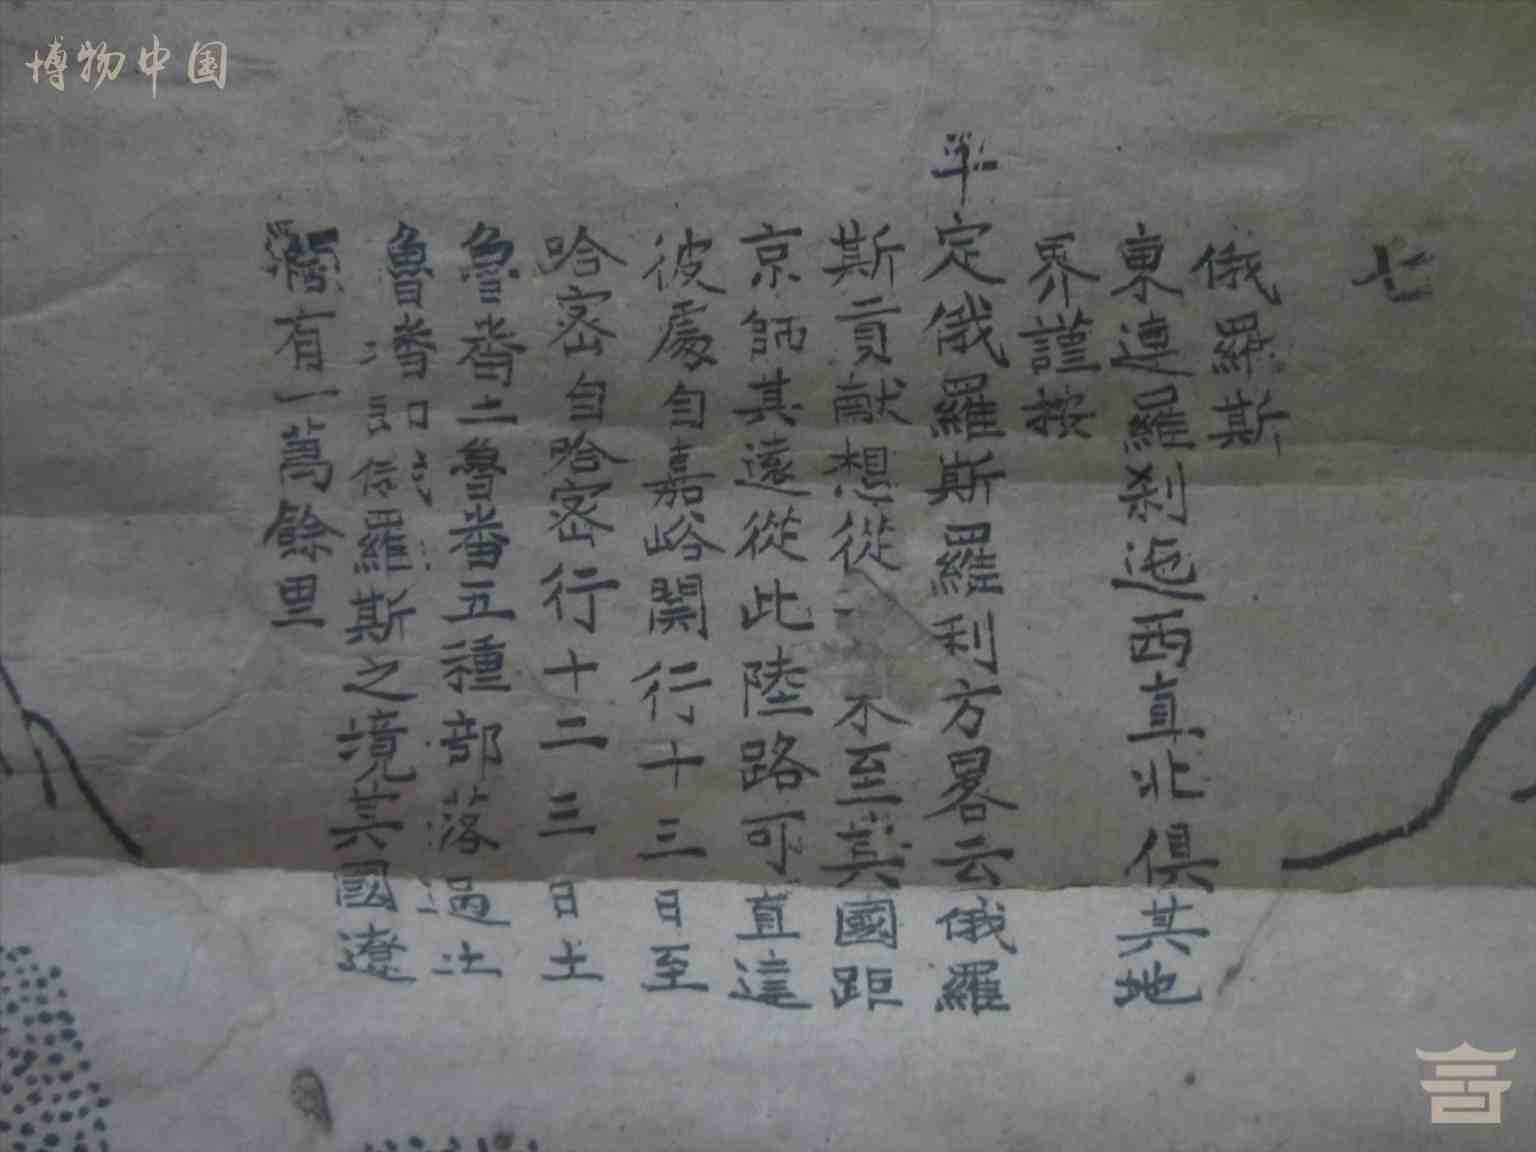 博物中国
七
俄羅斯
東連羅刹迤西直北俱其地
界謹按
平定俄羅斯羅刹方畧云俄羅
斯貢獻想從 不至其國距
京師其遠從此陸路可直達
彼處自嘉峪関行十三日至
哈密自哈密行十二三日土
魯番土魯番五種部落過土
魯番 俄羅斯之境其國遼
濶有一萬餘里